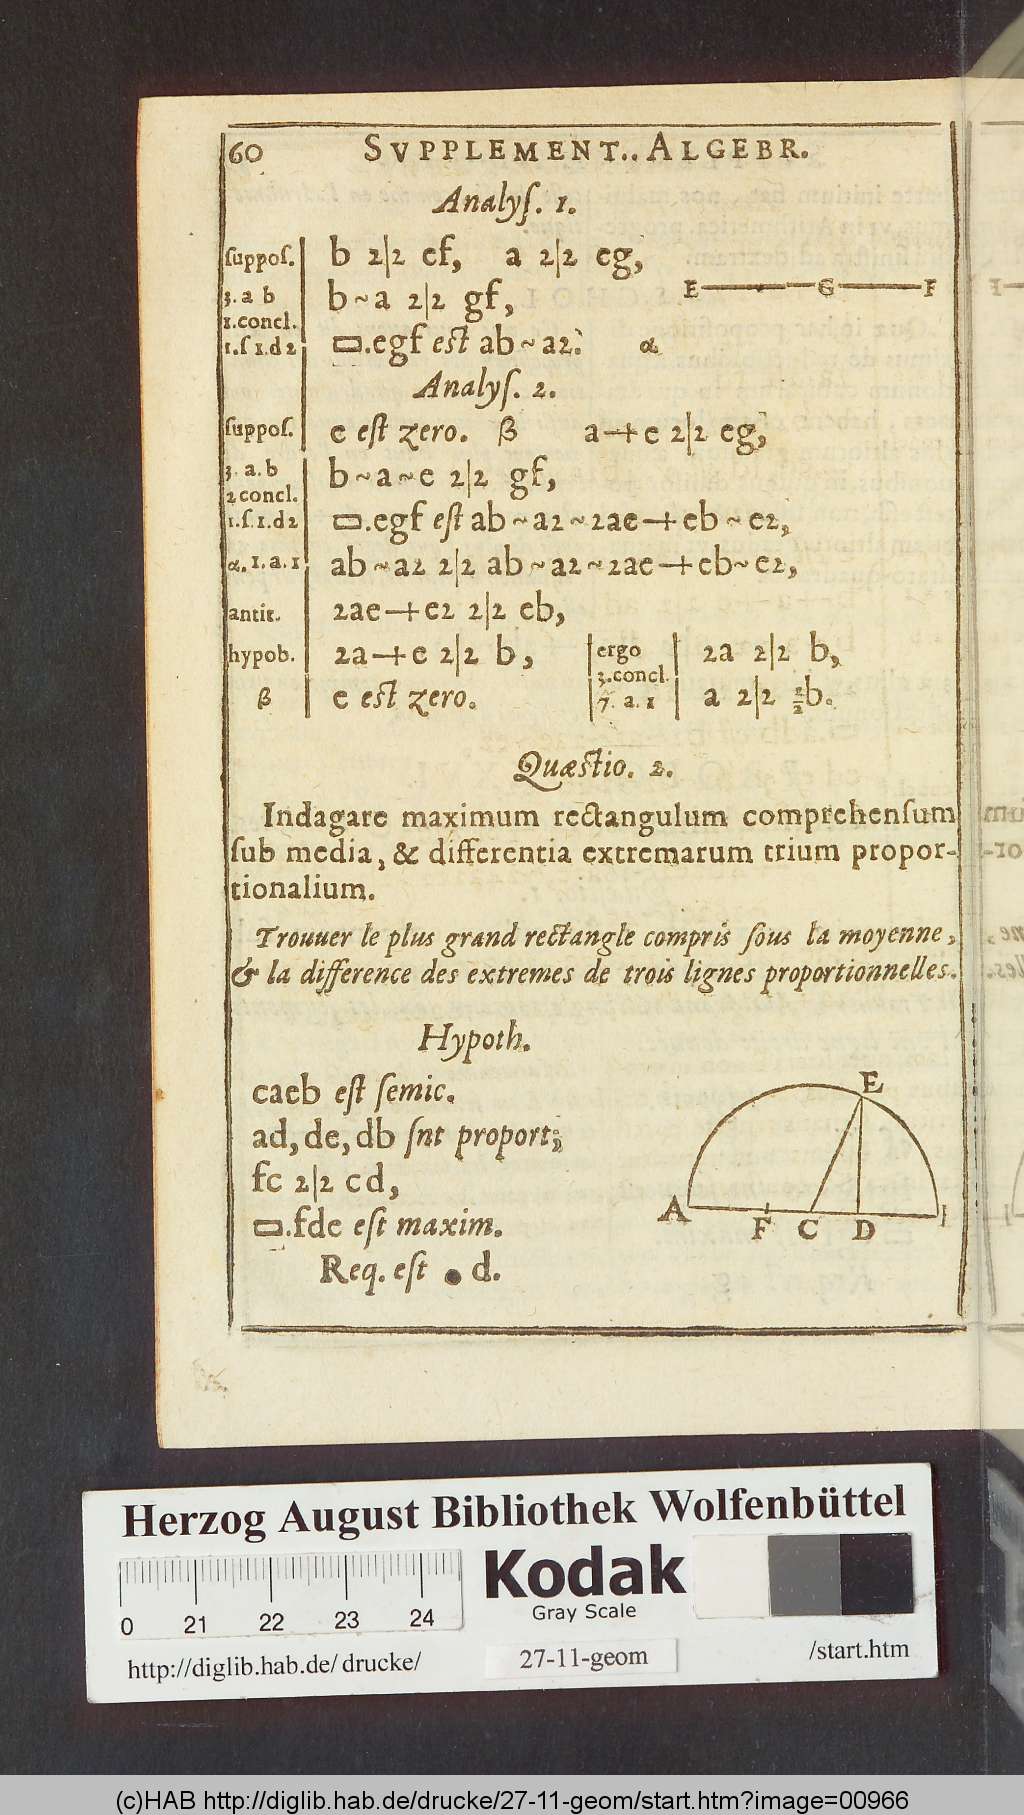 60 SVPPLEMENT.. ALGEBR.
Analyſ. 1.
ſuppoſ. b 2|2 ef, a 2|2 eg,
3. a b
1.concl. b ~ a 2|2 gf,
1.ſ 1.d 2 ▭.egf eſt ab ~ a2. α
E G F
Analyſ. 2.
ſuppoſ. e eſt zero. β a + e 2|2 eg,
3. a. b
2 concl. b ~ a ~ e 2|2 gf,
1.ſ. 1.d2 ▭.egf eſt ab ~ a2 ~ 2ae + eb ~ e2,
α. 1. a. 1 ab ~ a2 2|2 ab ~ a2 ~ 2ae + eb ~ e2,
antit. 2ae + e2 2|2 eb,
hypob. 2a + e 2|2 b, ergo 2a 2|2 b,
3.concl.
β e eſt zero. 7. a. 1 a 2|2 ½b.
Quæſtio. 2.
Indagare maximum rectangulum comprehenſum
ſub media, & differentia extremarum trium propor-
tionalium.
Trouuer le plus grand rectangle compris ſous la moyenne,
& la difference des extremes de trois lignes proportionnelles.
Hypoth.
caeb eſt ſemic.
ad, de, db ſnt proport;
fc 2|2 cd,
▭.fde eſt maxim.
Req. eſt ● d.
E
A F C D
Herzog August Bibliothek Wolfenbüttel
0 21 22 23 24
Kodak
Gray Scale
http://diglib.hab.de/ drucke/ 27-11-geom /start.htm
(c)HAB http://diglib.hab.de/drucke/27-11-geom/start.htm?image=00966